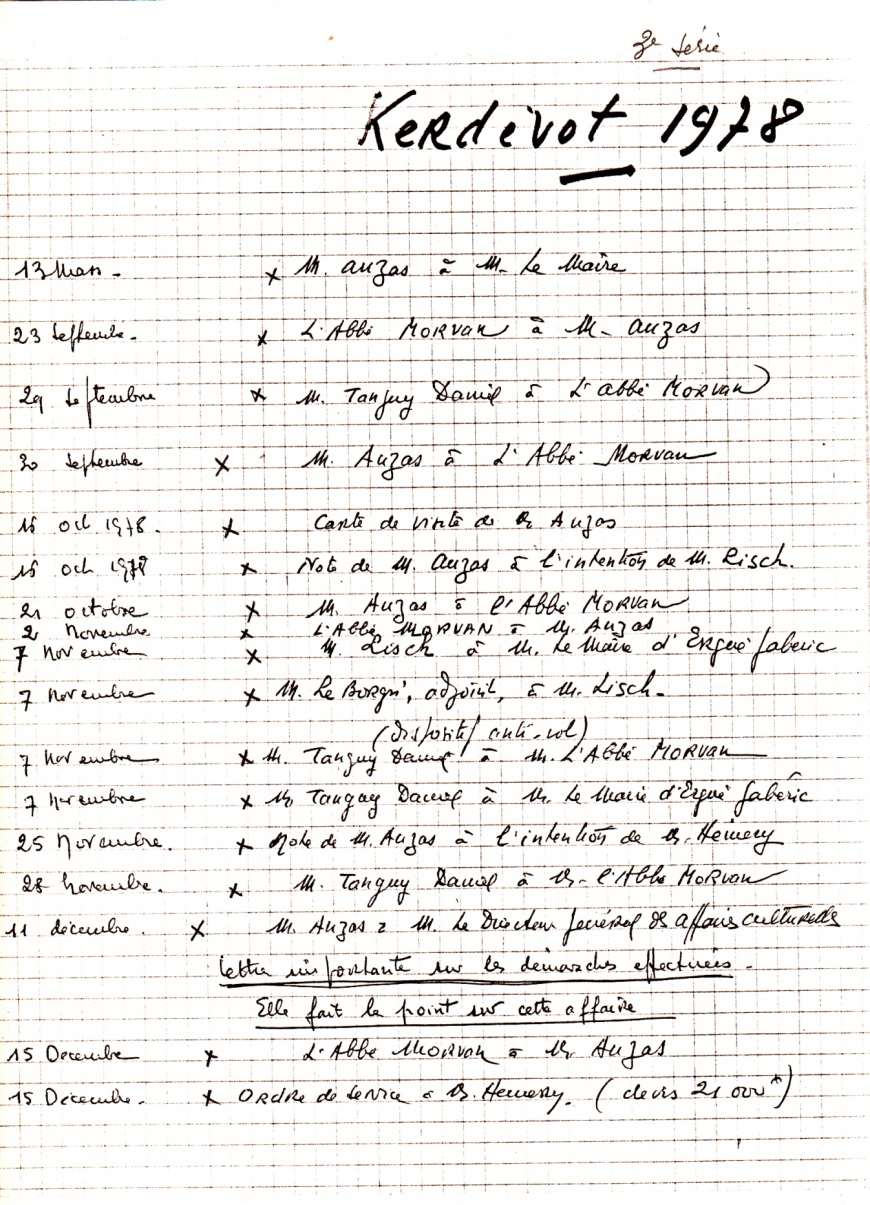 3e série
Kerdévot 1978
13 Mars - x M. Auzas à M. Le Maire
23 Septembre - x L'Abbé MORVAN à M. Auzas
29 Septembre x M. Tanguy Daniel à L'abbé MORVAN
30 Septembre x M. Auzas à L'Abbé MORVAN
16 oct 1978. x Carte de visite de M. Auzas
16 oct 1978 x Note de M. Auzas à l'intention de M. Lisch.
21 octobre x M. Auzas à l'Abbé MORVAN
2 Novembre x L'Abbé MORVAN à M. Auzas
7 Novembre x M. Lisch à M. Le Maire d'Ergué gabéric
7 Novembre x M. Le Borgn', adjoint, à M. Lisch.
(dispositif anti-vol)
7 Novembre x M. Tanguy Daniel à M. L'Abbé MORVAN
7 Novembre x M. Tanguy Daniel à M. Le Maire d'Ergué gabéric
25 Novembre. x Note de M. Auzas à l'intention de M. Hémery
28 novembre. x M. Tanguy Daniel à M. l'Abbé MORVAN
11 décembre. x M. Auzas à M. Le Directeur général des affaires culturelles
lettre importante sur les démarches effectuées.
Elle fait le point sur cette affaire
15 Décembre x L'Abbé MORVAN à M. Auzas
15 Décembre. x Ordre de Service à M. Hémery. (devis 21 000)